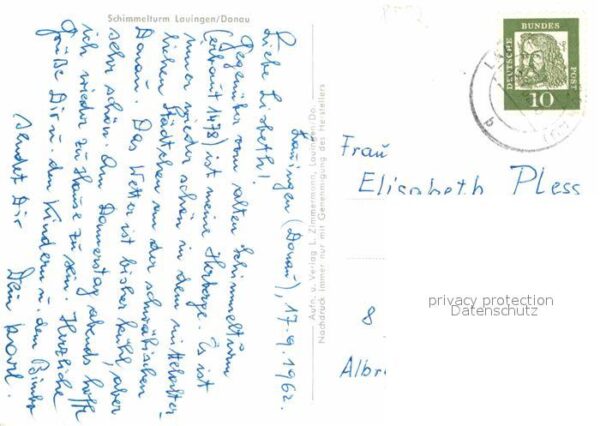 Schimmelturm Lauingen/Donau
Lauingen (Donau), 17.9.1962.
Liebe Lisbeth!
Gegenüber vom alten Schimmelturm
(erbaut 1478) ist meine Herberge. Es ist
immer wieder schön in dem mittelalter-
lichen Städtchen an der schwäbischen
Donau. Das Wetter ist bisher kühl, aber
sehr schön. Am Donnerstag abends hoffe
ich wieder zu Hause zu sein. Herzliche
Grüße Dir u. den Kindern u. dem
sendet Dir
Dein Karl.
Aufn. u. Verlag L. Zimmermann, Lauingen-Do.
Nachdruck immer nur mit Genehmigung des Herstellers
DEUTSCHE BUNDES POST
10
b
Frau
Elisabeth Pless
privacy protection
Datenschutz
8
Albr